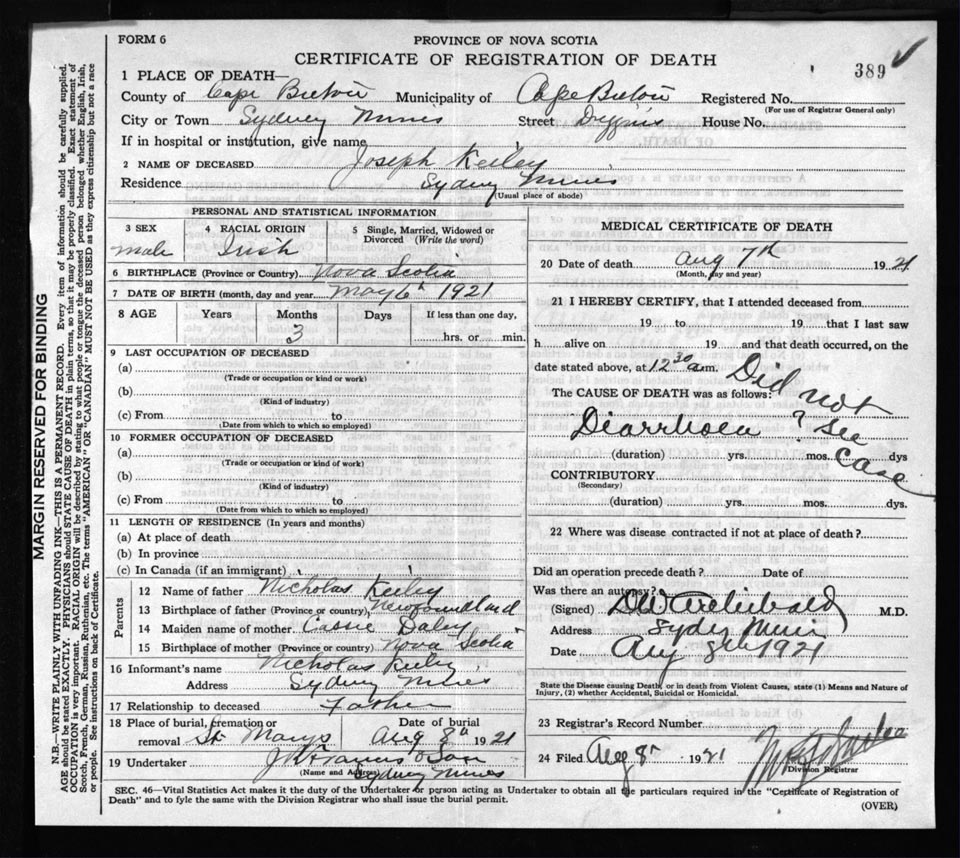 FORM 6
PROVINCE OF NOVA SCOTIA
CERTIFICATE OF REGISTRATION OF DEATH
389
1 PLACE OF DEATH—
County of Cape Breton Municipality of Cape Breton Registered No.
(For use of Registrar General only)
City or Town Sydney Mines Street House No.
If in hospital or institution, give name
2 NAME OF DECEASED Joseph Keiley
Residence Sydney Mines
(Usual place of abode)
PERSONAL AND STATISTICAL INFORMATION
3 SEX
male
4 RACIAL ORIGIN
Irish
5 Single, Married, Widowed or Divorced (Write the word)
6 BIRTHPLACE (Province or Country) Nova Scotia
7 DATE OF BIRTH (month, day and year) May 6th 1921
8 AGE Years Months Days If less than one day,
3 hrs. or min.
9 LAST OCCUPATION OF DECEASED
(a)
(Trade or occupation or kind or work)
(b)
(Kind of industry)
(c) From to
(Date from which to which so employed)
10 FORMER OCCUPATION OF DECEASED
(a)
(Trade or occupation or kind or work)
(b)
(Kind of industry)
(c) From to
(Date from which to which so employed)
11 LENGTH OF RESIDENCE (In years and months)
(a) At place of death
(b) In province
(c) In Canada (if an immigrant)
Parents
12 Name of father Nicholas Keiley
13 Birthplace of father (Province or country) Newfoundland
14 Maiden name of mother Cassie Daley
15 Birthplace of mother (Province or country) Nova Scotia
16 Informant's name Nicholas Keiley
Address Sydney Mines
17 Relationship to deceased Father
18 Place of burial, cremation or removal St Marys Date of burial Aug 8th 1921
19 Undertaker & Son
(Name and Address) Sydney Mines
MEDICAL CERTIFICATE OF DEATH
20 Date of death Aug 7th 1921
(Month, day and year)
21 I HEREBY CERTIFY, that I attended deceased from
19 to 19 that I last saw
h alive on 19 and that death occurred, on the
date stated above, at 12 30 a.m.
The CAUSE OF DEATH was as follows:
Diarrhoea ? Did not see case
(duration) yrs. mos. dys
CONTRIBUTORY
(Secondary)
(duration) yrs. mos. dys.
22 Where was disease contracted if not at place of death?
Did an operation precede death? Date of
Was there an autopsy?
(Signed) Archibald M.D.
Address Sydney Mines
Date Aug 8th 1921
State the Disease causing Death, or in death from Violent Causes, state (1) Means and Nature of
Injury, (2) whether Accidental, Suicidal or Homicidal.
23 Registrar's Record Number
24 Filed Aug 8th 1921
Division Registrar
SEC. 46—Vital Statistics Act makes it the duty of the Undertaker or person acting as Undertaker to obtain all the particulars required in the "Certificate of Registration of
Death" and to fyle the same with the Division Registrar who shall issue the burial permit.
(OVER)
MARGIN RESERVED FOR BINDING
N.B.—WRITE PLAINLY WITH UNFADING INK—THIS IS A PERMANENT RECORD. Every item of information should be carefully supplied.
AGE should be stated EXACTLY. PHYSICIANS should STATE CAUSE OF DEATH in plain terms, so that it may be properly classified. Exact statement of
OCCUPATION is very important. RACIAL ORIGIN will be described by stating to what people or tongue the deceased person belonged whether English, Irish,
Scotch, French, German, Russian, Ruthenian, etc. The terms "AMERICAN" OR "CANADIAN" MUST NOT BE USED as they express citizenship but not a race
or people. See instructions on back of Certificate.